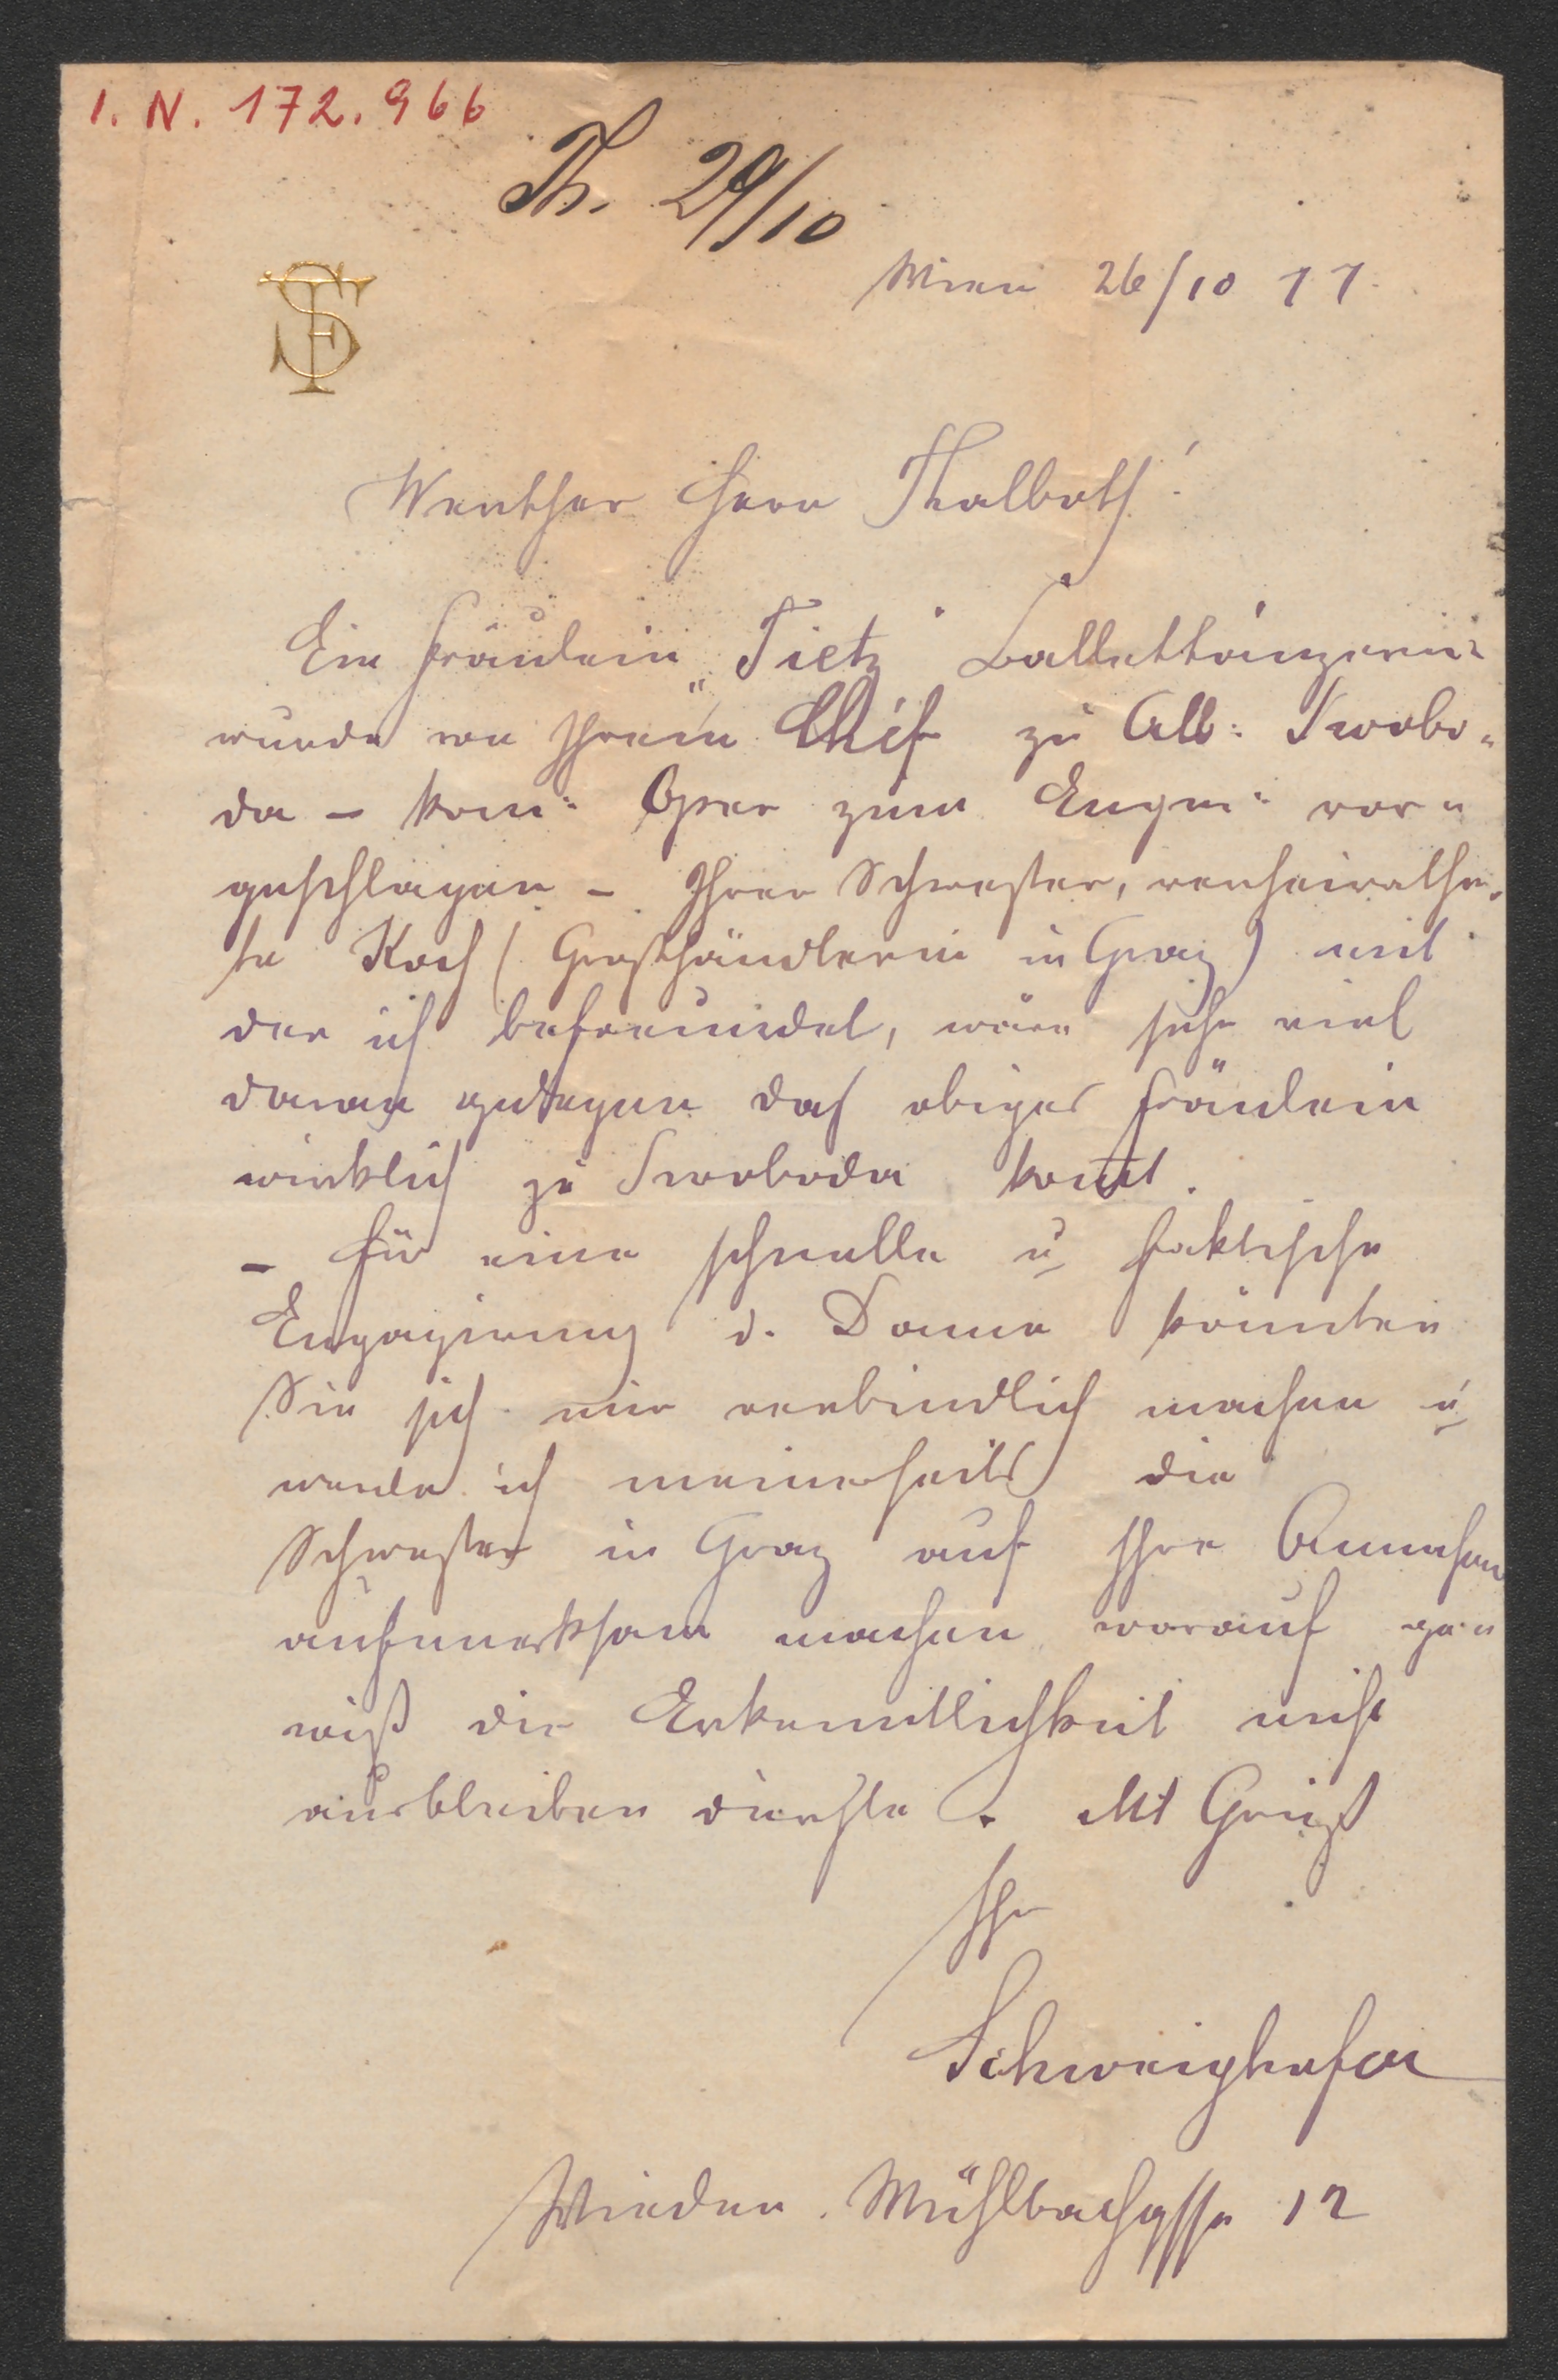 I. N. 172.966
Th. 29/10
Wien 26/10 77.
Werther Herr Thalboth!
Ein Fräulein „Tietz" Ballettänzerin
wurde von Ihrem Chef zu Alb: Swobo-
da – kom: Oper zum Engm: vor-
geschlagen – Ihrer Schwester, verheirathe-
te Koch (Großhändlerin in Graz) mit
der ich befreundet, wäre sehr viel
daran gelegen daß obiges Fräulein
wirklich zu Swoboda komt.
– Für eine schnelle u faktische
Engagirung d. Dame könnten
Sie sich mir verbindlich machen u
werde ich meinerseits die
Schwester in Graz auf Ihre
aufmerksam machen worauf ge-
wiß die Erkenntlichkeit nicht
ausbleiben dürfte. Mt Gruß
Ihr
Schweighofer
Wieden. Mühlbachgsse 12